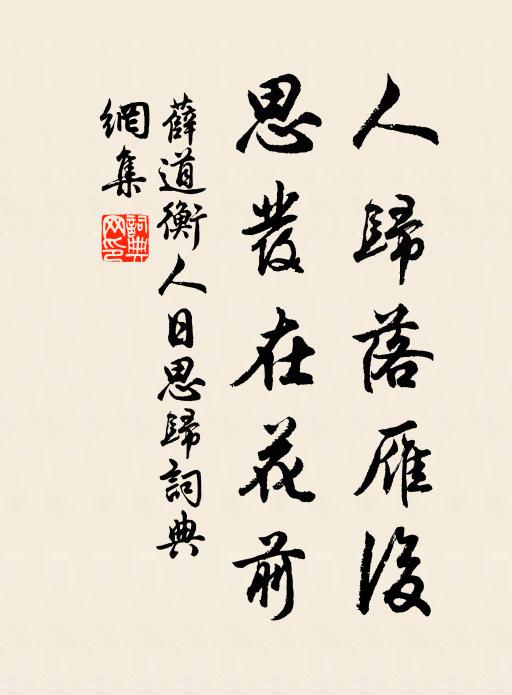 人歸落雁後
思發在花前
薛道衡人日思歸詞典
網集
詞典網印